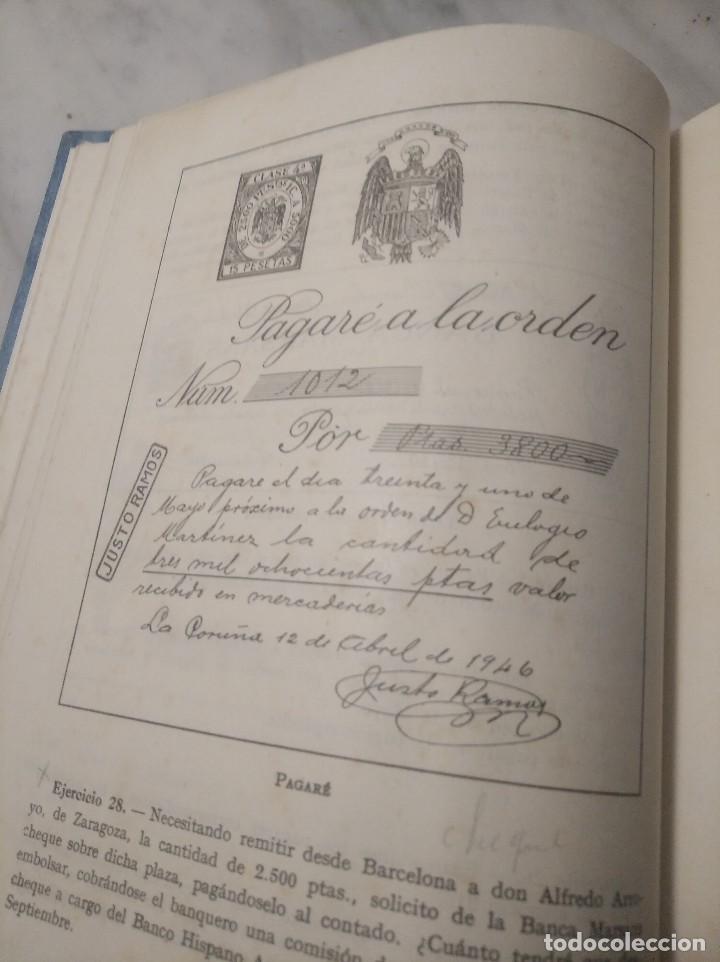 CLASE 4ª
DE 2500'01 PESETAS A 5000
15 PESETAS
Pagaré a la orden
Num. 1012
Por Ptas. 3800
JUSTO RAMOS
Pagaré el dia treinta y uno de
Mayo próximo a la orden de D Eulogio
Martinez la cantidad de
tres mil ochocientas ptas valor
recibido en mercaderias
La Coruña 12 de Abril de 1946
Justo Ramos
PAGARÉ
cheque
Ejercicio 28. — Necesitando remitir desde Barcelona a don Alfredo Arro-
yo, de Zaragoza, la cantidad de 2.500 ptas., solicito de la Banca
cheque sobre dicha plaza, pagándoselo al contado. ¿Cuánto tendré
embolsar, cobrándose el banquero una comisión
cheque a cargo del Banco Hispano
Septiembre.
todocoleccion